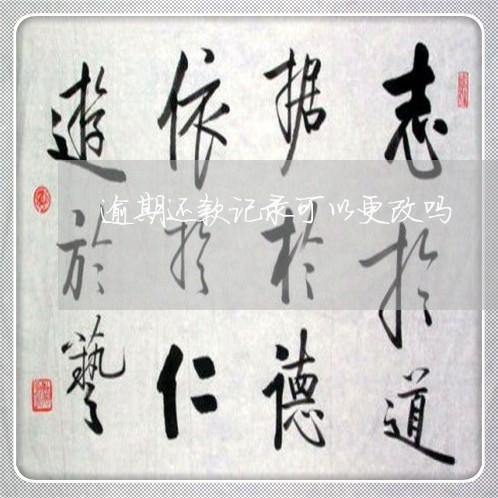 志於道
据於德
依於仁
遊於藝
逾期还款记录可以更改吗